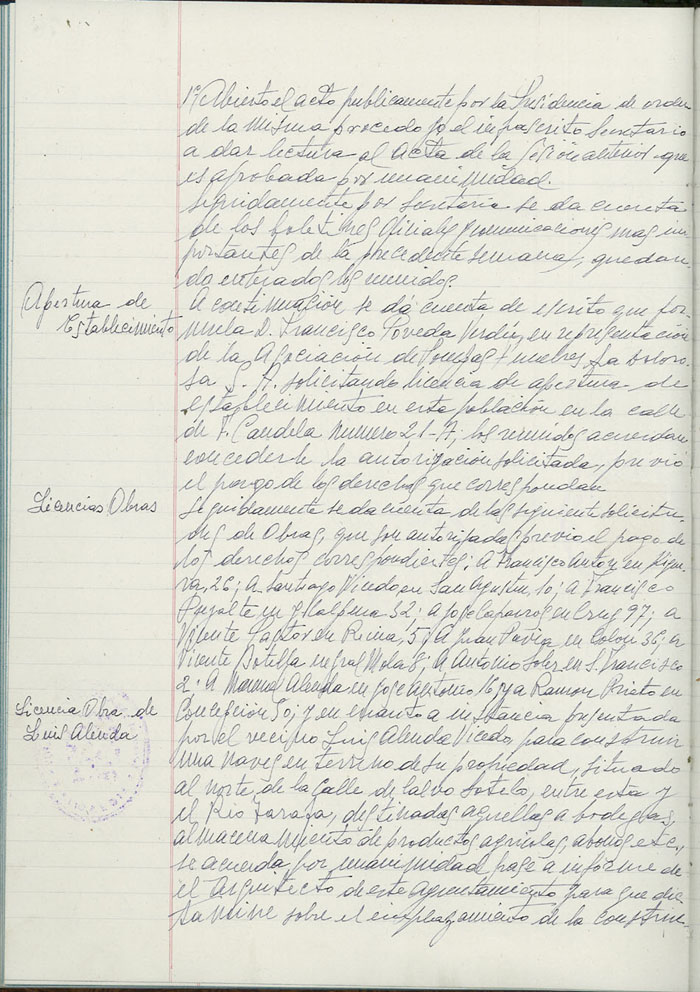 1º Abierto el acto publicamente por la Presidencia de orden
de la misma procedo yo el infrascrito Secretario
a dar lectura al Acta de la sesión anterior que
es aprobada por unanimidad.
Seguidamente por Secretaria se da cuenta
de los Boletines Oficiales y comunicaciones mas im
portantes de la precedente semana, quedan
do enterados los reunidos.
Apertura de
Establecimiento
A continuación se dá cuenta de escrito que for-
mula D. Francisco Poveda Verdú, en representación
de la Asociación de Pompas Funebres La Doloro-
sa S. A. solicitando licencia de apertura de
establecimiento en esta población en la calle
de F. Candela numero 21-A; los reunidos acuerdan
concederle la autorización solicitada, previo
el pago de los derechos que correspondan
Licencias Obras
Seguidamente se da cuenta de las siguiente solicitu-
des de Obras, que son autorizadas previo el pago de
los derechos correspondientes: A Francisco Anton en
26; a Santiago en San Agustin, 10; a Francisco
en 32; a Jose Caparros en Cruz 97; a
Vicente Pastor en Reina, 51 A Juan Pavia en Colon 36; a
Vicente Botella en Gral Mola 8; A Antonio Soler en S. Francisco
2; A Alenda en Jose Antonio 16 y a Ramon Prieto en
Licencia Obra de
Luis Alenda
Concepción 50; y en cuanto a instancia presentada
por el vecino Luis Alenda Vicedo, para construir
una naves en terreno de su propiedad, situado
al norte de la Calle de Calvo Sotelo, entre esta y
el Rio Tarafa, destinadas aquellas a bodegas,
almacenamiento de productos agricolas, abonos etc.,
se acuerda por unanimidad pase a informe de
el Arquitecto de este Ayuntamiento para que dic-
tamine sobre el emplazamiento de la construc-